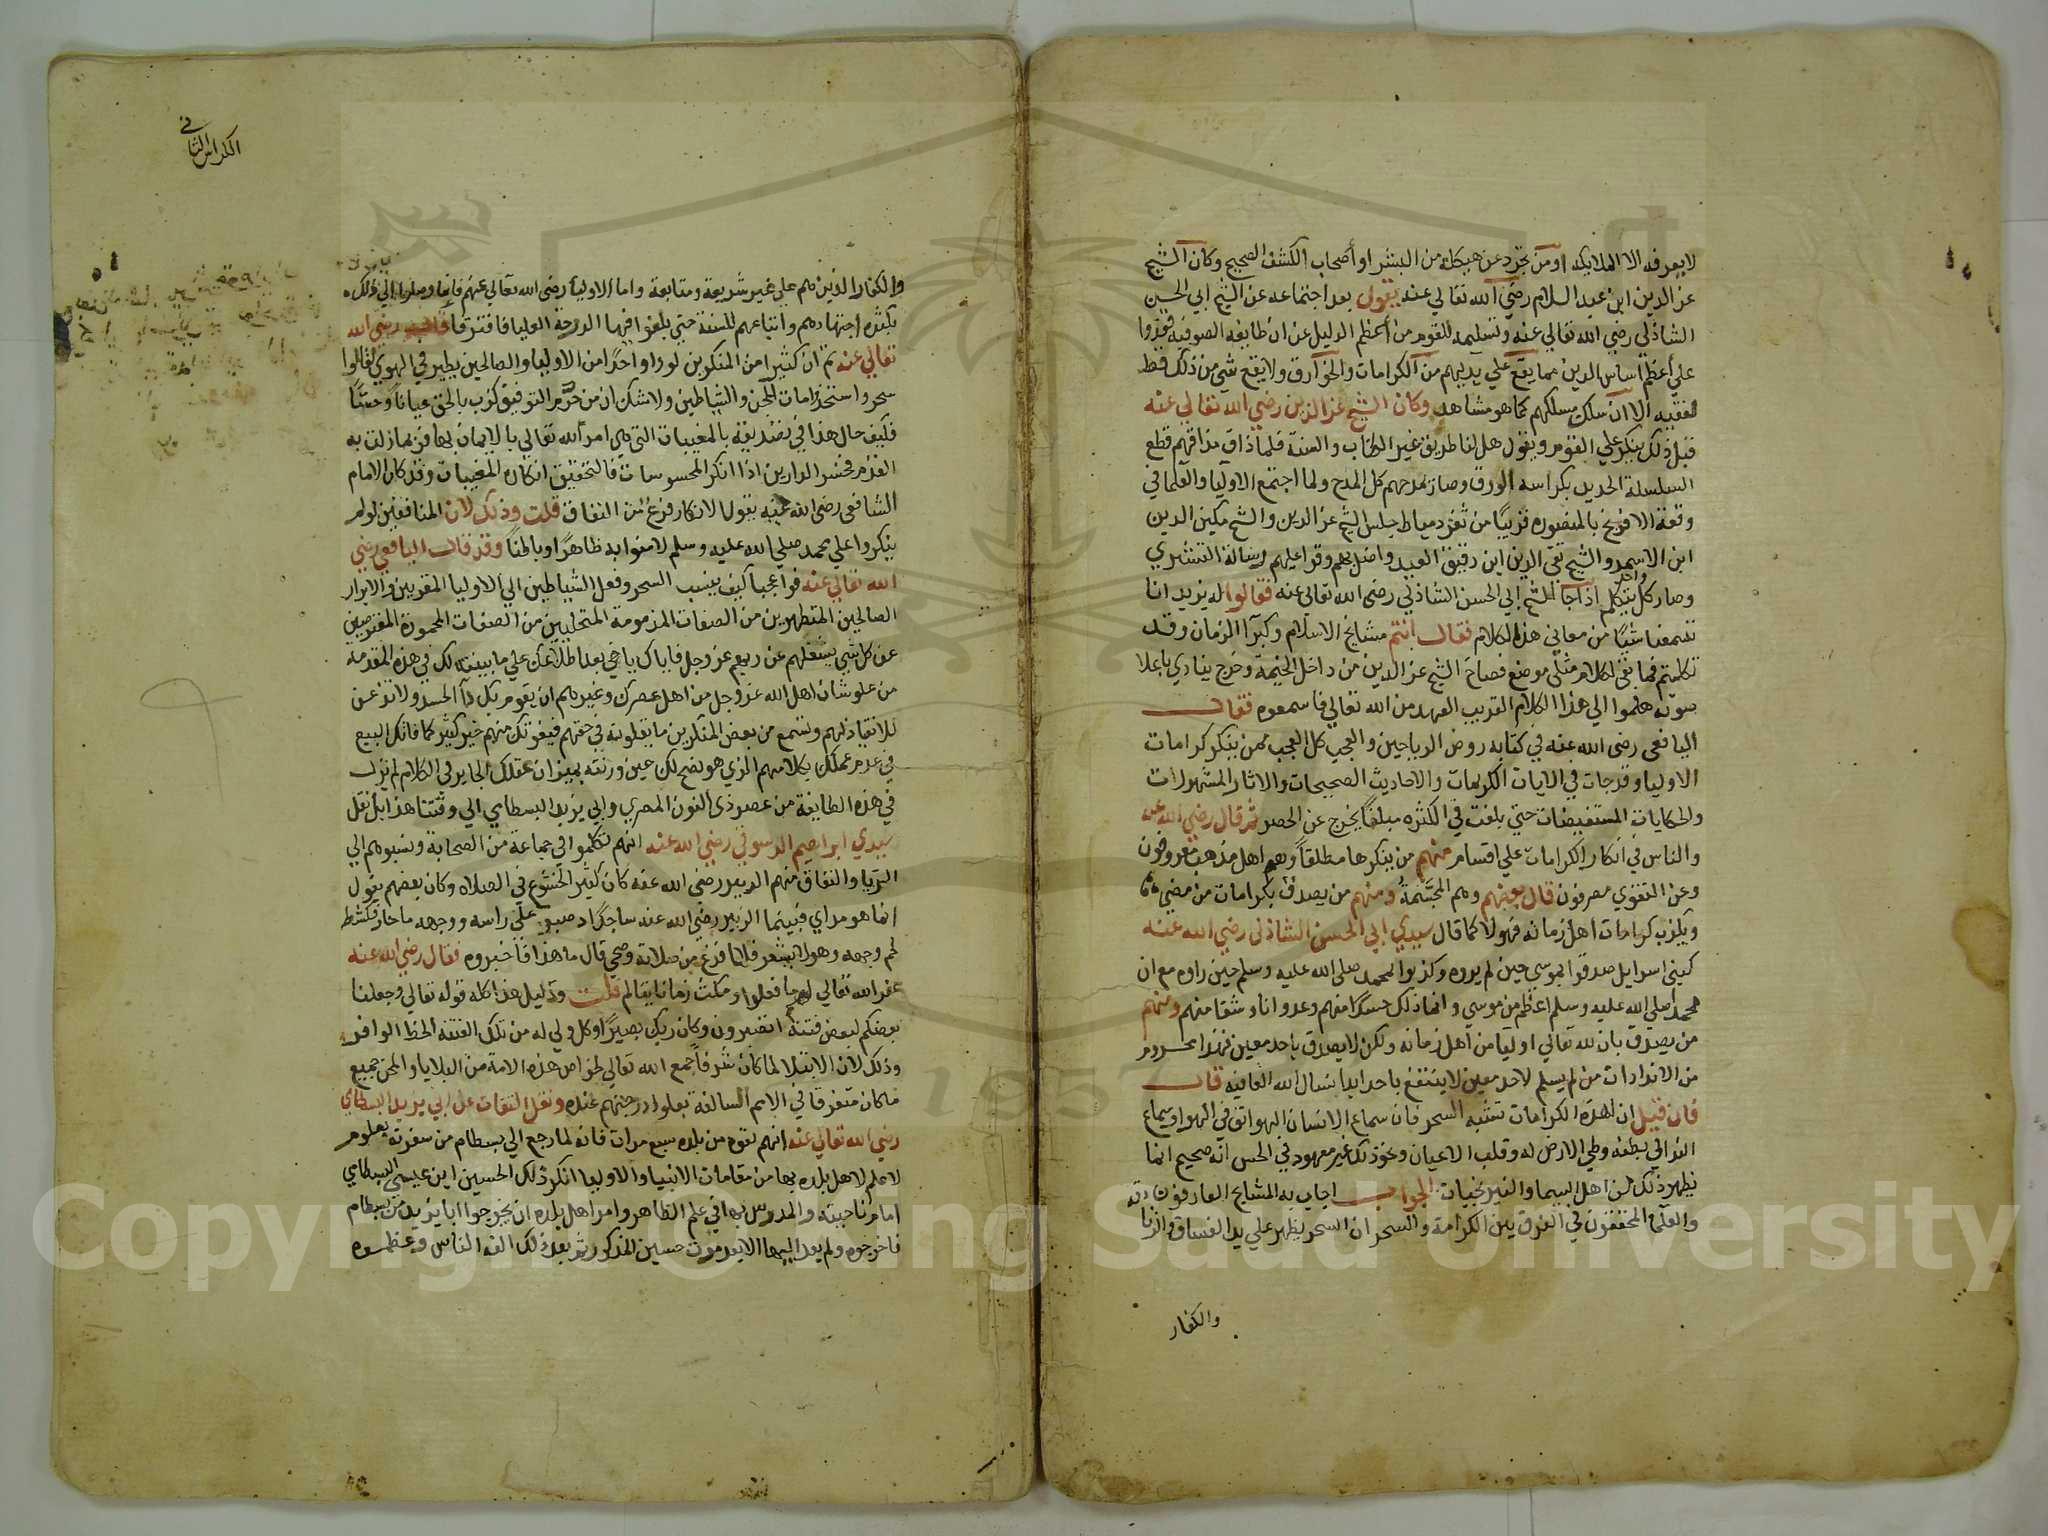 لا يعرفه الا الملايكه او من تجرد عن هيكله من البشر او أصحاب الكشف الصحيح وكان الشيخ
عز الدين ابن عبد السلام رضي الله تعالي عنه يقول بعد اجتماعه عن الشيخ ابي الحسن
الشاذلي رضي الله تعالي عنه وتسليمه للقوم من أعظم الدليل عن ان طايفة الصوفيه قعدوا
علي أعظم اساس الدين مما يقع علي يديهم من الكرامات والخوارق ولا يقع شي من ذلك قط
لفقيه الا ان سلك مسلكهم كما هو مشاهد وكان الشيخ عز الدين رضي الله تعالي عنه
قبل ذلك ينكر علي القوم ويقول هل لنا طريق غير الكتاب والسنة فلما ذاق مذاقهم قطع
السلسلة الحديد بكراسه الورق وصار يمدحهم كل المدح ولما اجتمع الاوليا والعلما في
وقعة الافرنج بالمنصوره قريبًا من ثغر دمياط جلس الشيخ عز الدين والشيخ مكين الدين
ابن الاسمر والشيخ تقي الدين ابن دقيق العيد واضرابهم وقرا عليهم رسالة القشيري
وصار كل واحد يتكلم اذ جا الشيخ ابي الحسن الشاذلي رضي الله تعالي عنه فقالوا له نريد انا
تسمعنا شيًا من معاني هذا الكلام فقال انتم مشايخ الاسلام وكبرآ الزمان وقد
تكلمتم فما بقي لكلام مثلي موضع فصاح الشيخ عز الدين من داخل الخيمة وخرج ينادي باعلا
صوته هلموا الي هذا الكلام القريب العهد من الله تعالي فاسمعوه فقال
اليافعي رضي الله عنه في كتابه روض الرياحين والعجب كل العجب ممن ينكر كرامات
الاوليا وقد جات في الايات الكريمات والاحاديث الصحيحات والاثار المشهورات
والحكايات المستفيضات حتي بلغت في الكثره مبلغًا يخرج عن الحصر ثم قال رضي الله عنه
والناس في انكار الكرامات علي اقسام منهم من ينكرها مطلقًا وهم اهل مذهب معروفون
وعن التقوي مصرفون قال بعضهم وهم المجسمة ومنهم من يصدق بكرامات من مضي
ويكذب كرامات اهل زمانه فهولا كما قال سيدي ابي الحسن الشاذلي رضي الله عنه
كبني اسرايل صدقوا بموسي حين لم يروه وكذبوا بمحمد صلي الله عليه وسلم حين راوه مع ان
محمد صلي الله عليه وسلم اعظم من موسي وانما ذلك حسدًا منهم وعدوانا وشقا منهم ومنهم
من يصدق بان لله تعالي اوليا من أهل زمانه ولكن لا يصدق باحد معين فهذا محروم
من الامدادات من لم يسلم لاحد معين لا ينتفع باحد ابدا نسال الله العافيه قال
فان قيل ان هذه الكرامات تشبه السحر فان سماع الانسان الهواتف في الهوا وسماع
الندا في بطنه وطي الارض له وقلب الاعيان ونحو ذلك غير معهود في الحس انه صحيح انما
يظهر ذلك من اهل السيميا والنيرنجيات الجواب اجاب به المشايخ العارفون
والعلما المحققون في الفرق بين الكرامة والسحر ان السحر يظهر علي يد الفساق والزنا
والكفار
الكراس الثاني
والكفار الذين هم علي غير شريعة ومتابعة واما الاوليا رضي الله تعالي عنهم فانما وصلوا الي ذلك
بكثرة اجتهادهم واتباعهم للسنة حتي بلغوا فيها الدرجة العليا فافترقا رضي الله
تعالي عنه ثم ان كثيرا من المنكرين لو راوا احدًا من الاوليا والصالحين يطير في الهوي لقالوا
سحر واستخدامات للجن والشياطين ولا شك ان من حرم التوفيق كذب بالحق عيانًا وحسًا
فكيف حال هذا في تصديقه بالمغيبات التي هي امر الله تعالي بالايمان بها فربما زلت به
القدم فخسر الدارين اذا انكر المحسوسات فالتحقيق انكاره المغيبات وقد كان الامام
الشافعي رضي الله عنه يقول الانكار فرع من النفاق قلت وذلك لان المنافقين لو لم
ينكروا علي محمد صلي الله عليه وسلم لامنوا به ظاهرًا وباطنًا وقد قال اليافعي رضي
الله تعالي عنه فوا عجبا كيف ينسب السحر وفعل الشياطين الي الاوليا المقربين والابرار
الصالحين المتطهرين من الصفات المذمومة المتحليين من الصفات المحمودة المعرضين
عن كل شي يشغلهم عن ربهم عز وجل فاياك يا اخي بعد اطلاعك علي ما بينته لك في هذه المقدمة
من علو شان اهل الله عز وجل من اهل عصرك وغيرهم ان يقوم بك دا الحسد ولا تذعن
للانقياد لهم وتسمع من بعض المنكرين ما يقولونه في حقهم فيفوتك منهم خير كثير كما فاتك البيع
في عدم عملك بكلامهم الذي هو نصح لك حين وزنته بميزان عقلك الجاير في الكلام لم يزل
في هذه الطايفة من عصر ذي النون المصري وابي يزيد البسطامي الي وقتنا هذا بل نقل
سيدي ابراهيم الدسوقي رضي الله عنه انهم تكلموا في جماعة من الصحابة ونسبوهم الي
الريا والنفاق منهم الزبير رضي الله عنه كان كثير الخشوع في الصلاه وكان بعضهم يقول
انما هو مراي فبينما الزبير رضي الله عنه ساجدًا صبوا علي راسه ووجهه ما حار فكشط
لحم وجهه وهو لا يشعر فلما فرغ من صلاته وصحي قال ما هذا فاخبروه فقال رضي الله عنه
غفر الله تعالي لهم ما فعلوا ومكث زمانا يتالم قلت ودليل هذا كله قوله تعالي وجعلنا
بعضكم لبعض فتنة اتصبرون وكان ربك بصيرًا وكل ولي له من تلك الفتنة الحظ الوافر
وذلك لان الابتلا لما كان شرفا جمع الله تعالي لخواص هذه الامة من البلايا والمحن جميع
ما كان متفرقا في الامم السالفة لعلو درجتهم عنده ونقل الثقات عن ابي يزيد البسطامي
رضي الله تعالي عنه انهم نفوه من بلده سبع مرات فانه لما رجع الي بسطام من سفرته بعلوم
لا علم لاهل بلده بها من مقامات الانبيا والاوليا انكر ذلك الحسين ابن عيسي البسطامي
امام ناحيته والمدرس بها في علم الظاهر وامر اهل بلده ان يخرجوا ابا يزيد من بسطام
فاخرجوه ولم يعد اليها الا بعد موت حسين المذكور ثم بعد ذلك الفه الناس وعظموه
Copyright © King Saud University
1957